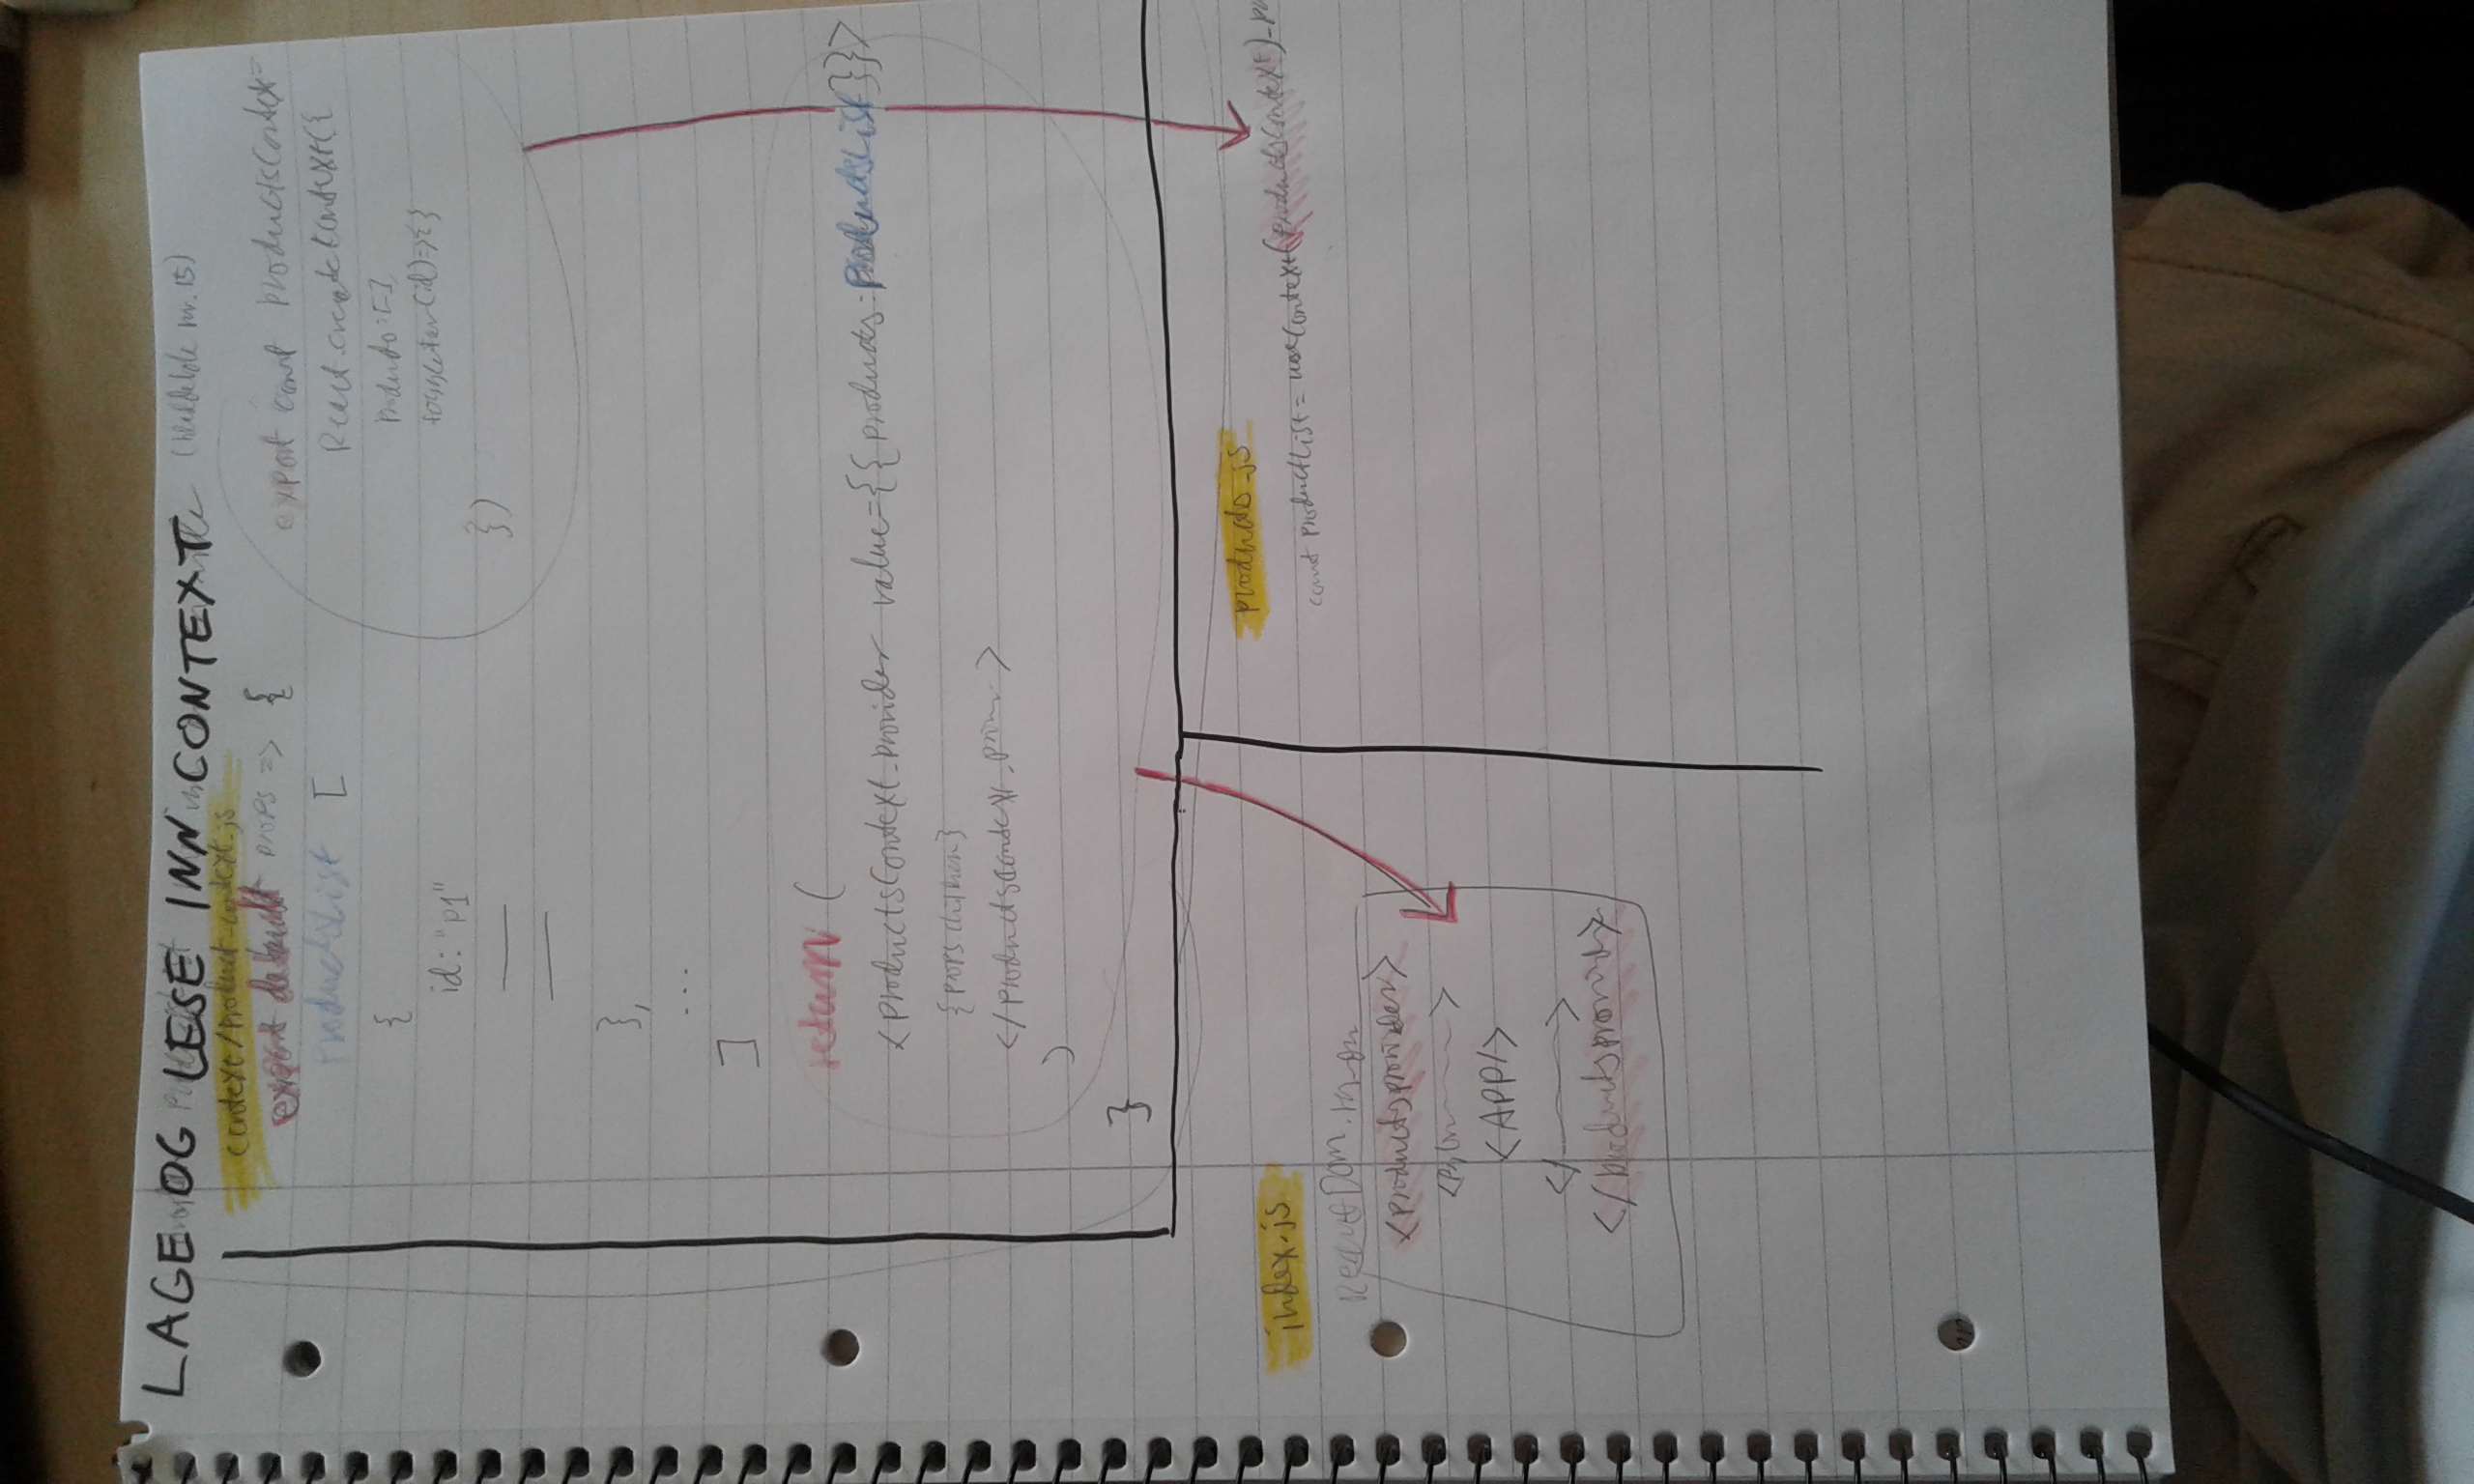 LAGE OG LESE INN CONTEXT
context/product-context.js
export default props => {
ProductsList [
{
id: "p1"
},
...
]
return (
<ProductsContext.provider value={{products:ProductsList}}>
{props.children}
</ProductsContext. >
)
}
export const ProductsContext=
React.createContext({
products:[],
(id)=>{}
})
index.js
<ProductsProvider>
<APP/>
products.js
const productList = useContext(ProductsContext).p